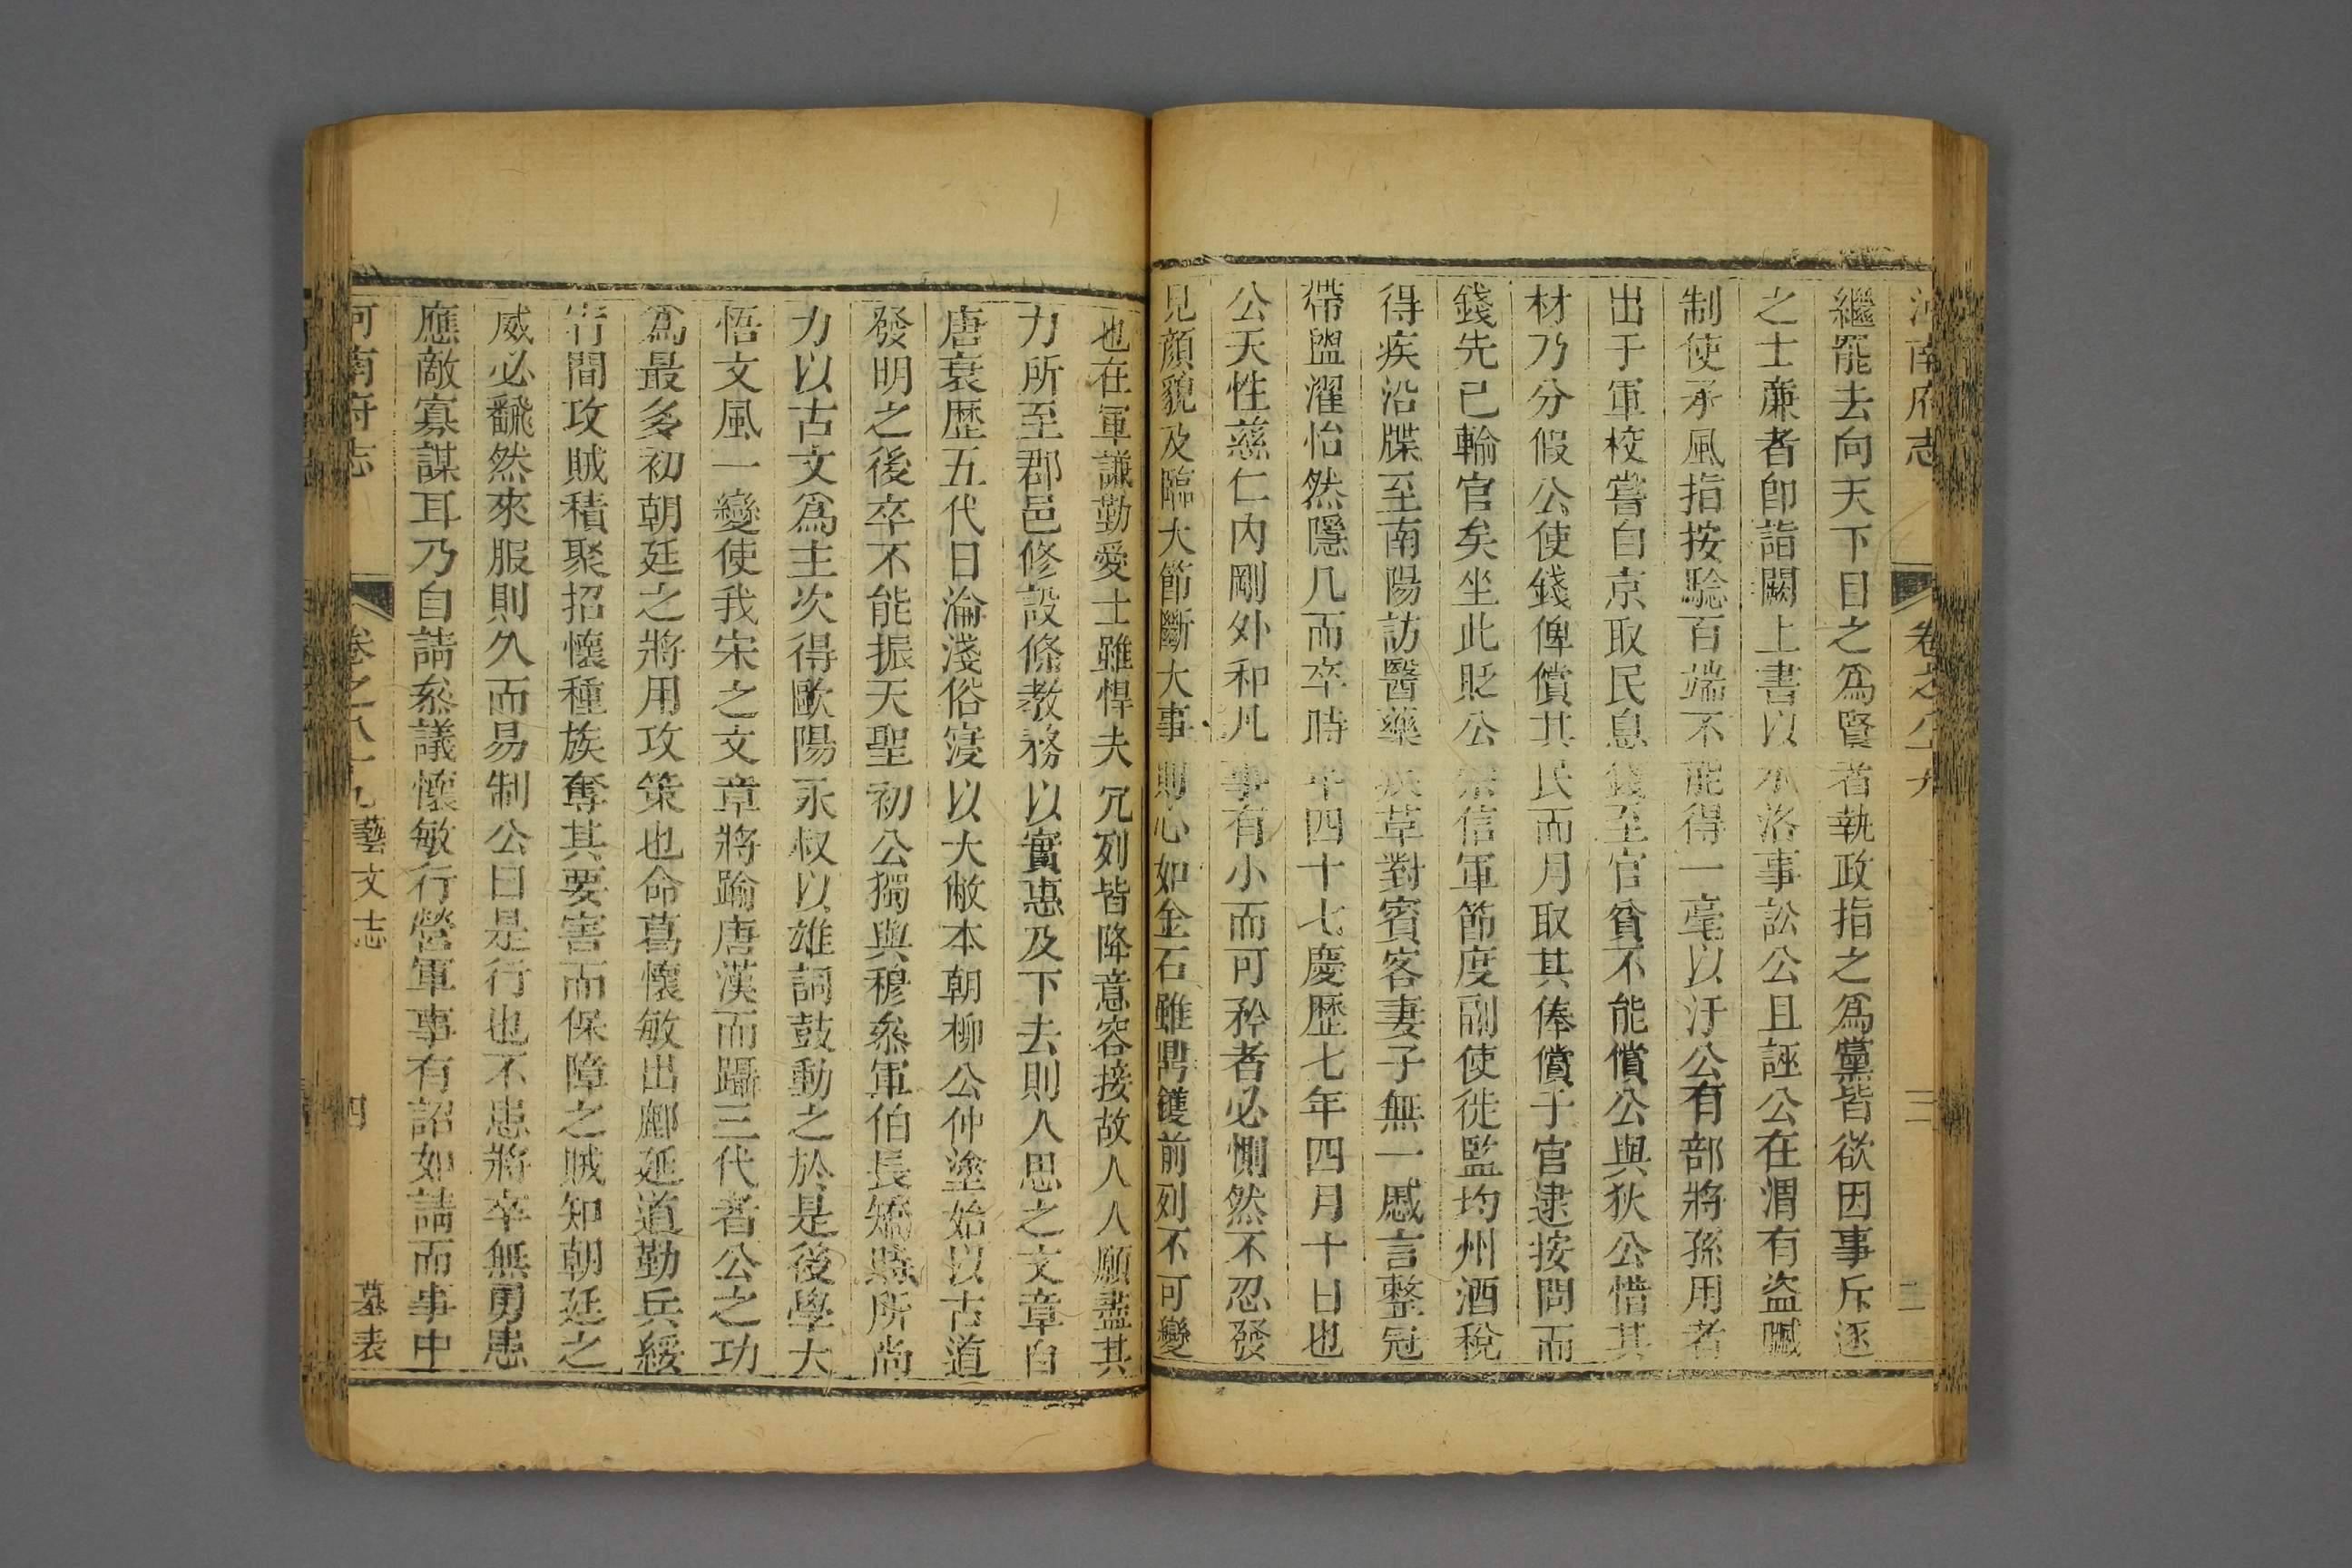 河南府志 卷之八十九 三
繼罷去向天下目之爲賢者執政指之爲黨皆欲因事斥逐
之士廉者卽詣闕上書以水洛事訟公且誣公在渭有盜贓
制使承風指按騐百端不能得一毫以汙公有部將孫用者
出于軍校嘗自京取民息錢至官貧不能償公與狄公惜其
材乃分假公使錢俾償其民而月取其俸償于官逮按問而
錢先已輸官矣坐此貶公崇信軍節度副使徙監均州酒稅
得疾沿牒至南陽訪醫藥疾革對賓客妻子無一慼言整冠
帶盥濯怡然隱几而卒時年四十七慶歷七年四月十日也
公天性慈仁內剛外和凡事有小而可矜者必惻然不忍發
見顏貌及臨大節斷大事則心如金石雖鼎鑊前列不可變
也在軍謙勤愛士雖悍夫冗列皆降意容接故人人願盡其
力所至郡邑修設條教務以實惠及下去則人思之文章自
唐衰歷五代日淪淺俗寖以大敝本朝柳公仲塗始以古道
發明之後卒不能振天聖初公獨與穆叅軍伯長矯時所尚
力以古文爲主次得歐陽永叔以雄詞鼓動之於是後學大
悟文風一變使我宋之文章將踰唐漢而躡三代者公之功
爲最多初朝廷之將用攻策也命葛懷敏出鄜延道勤兵綏
宥間攻賊積聚招懷種族奪其要害而保障之賊知朝廷之
威必飜然來服則久而易制公曰是行也不患將卒無勇患
應敵寡謀耳乃自請叅議懷敏行營軍事有詔如請而事中
河南府志 卷之八十九 藝文志 四 墓表